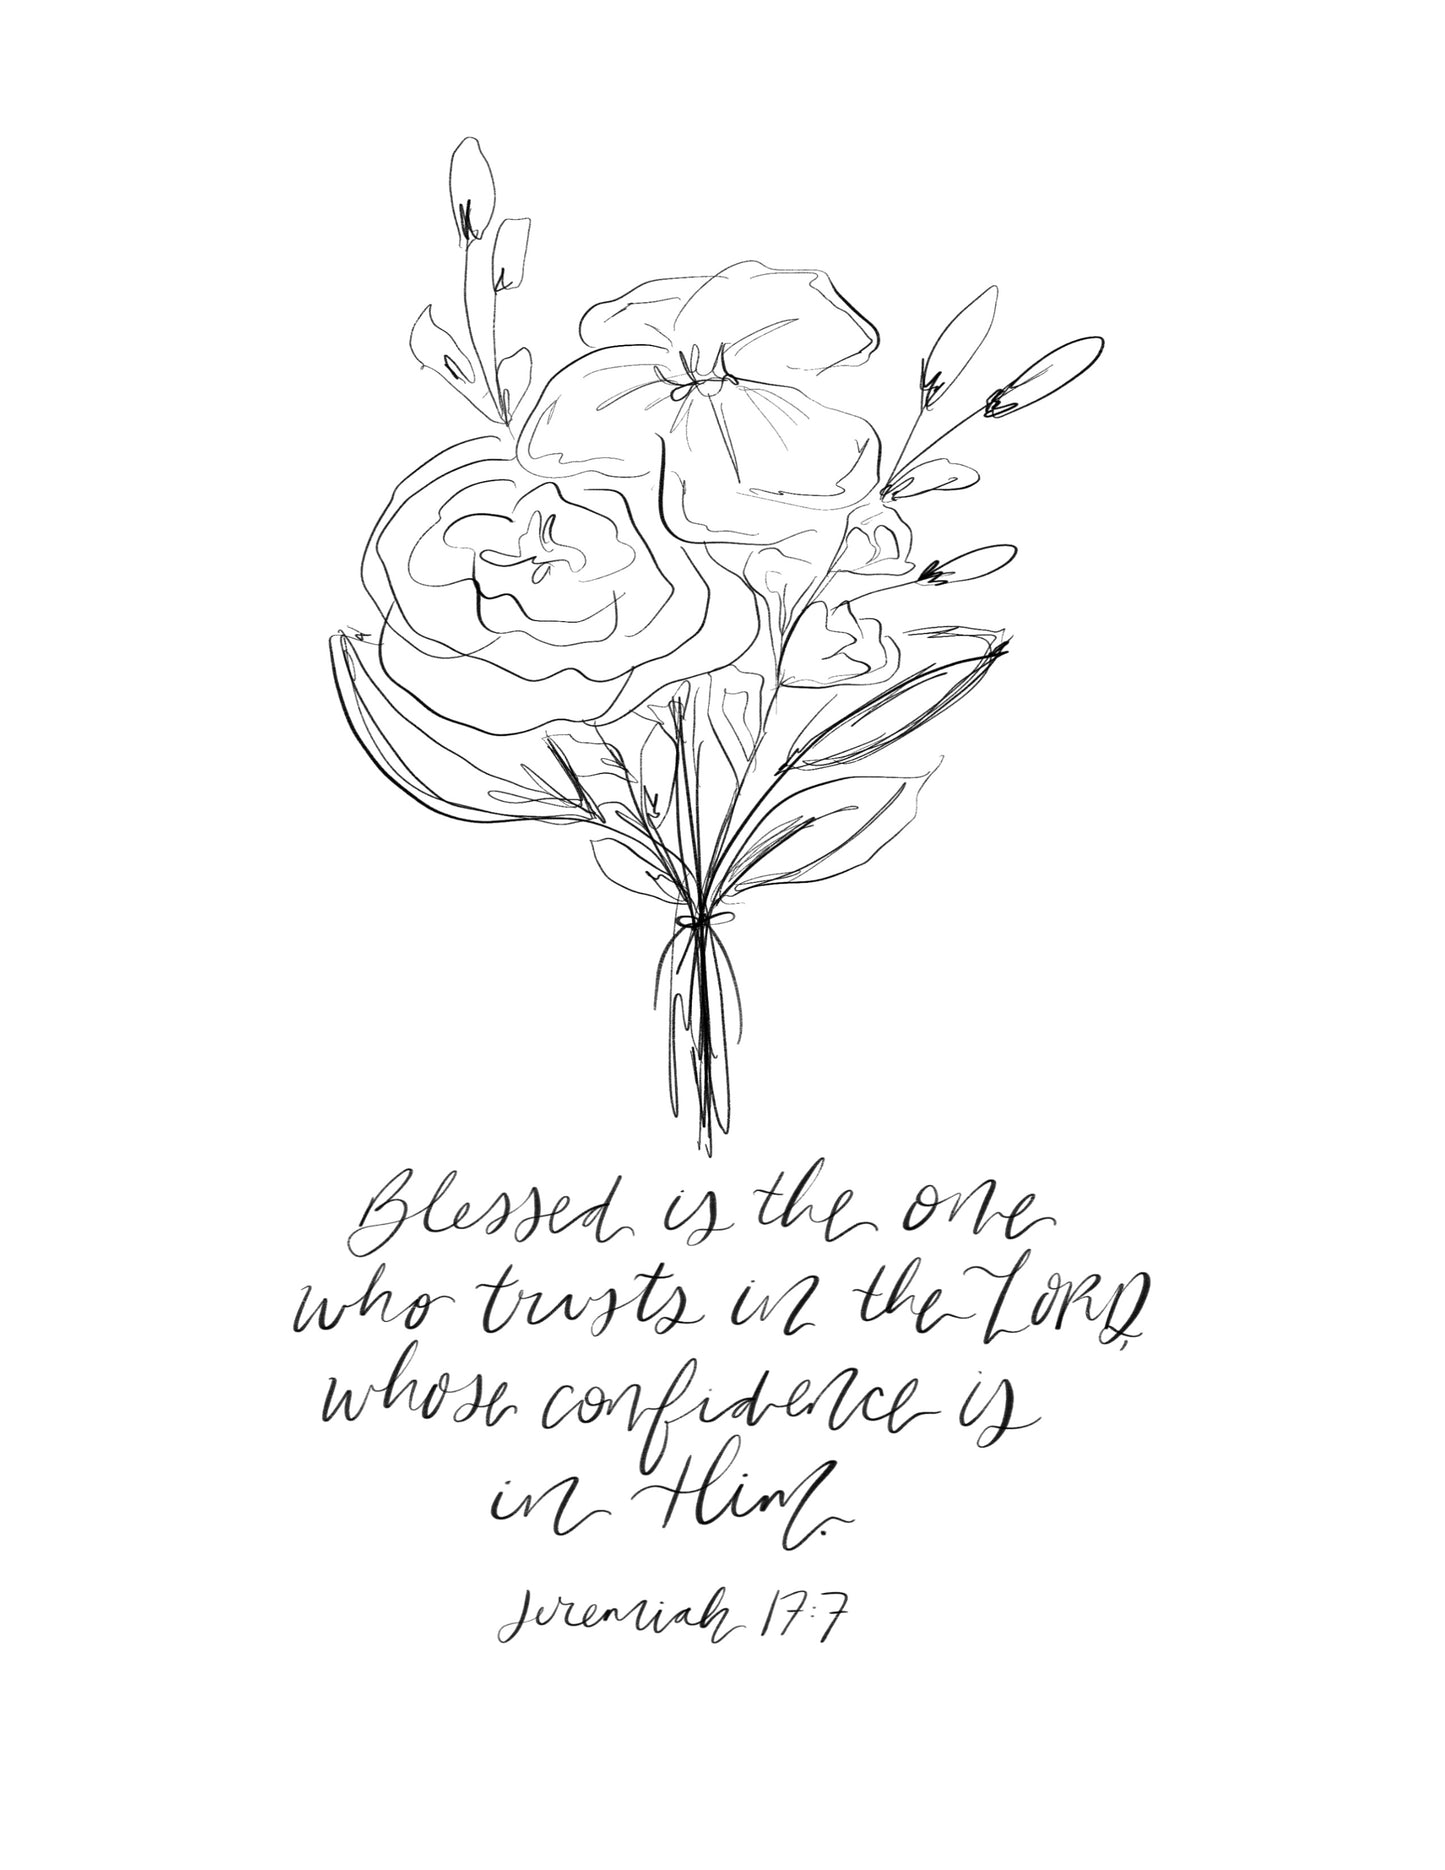 Blessed is the one
who trusts in the LORD,
whose confidence is
in Him.
Jeremiah 17:7